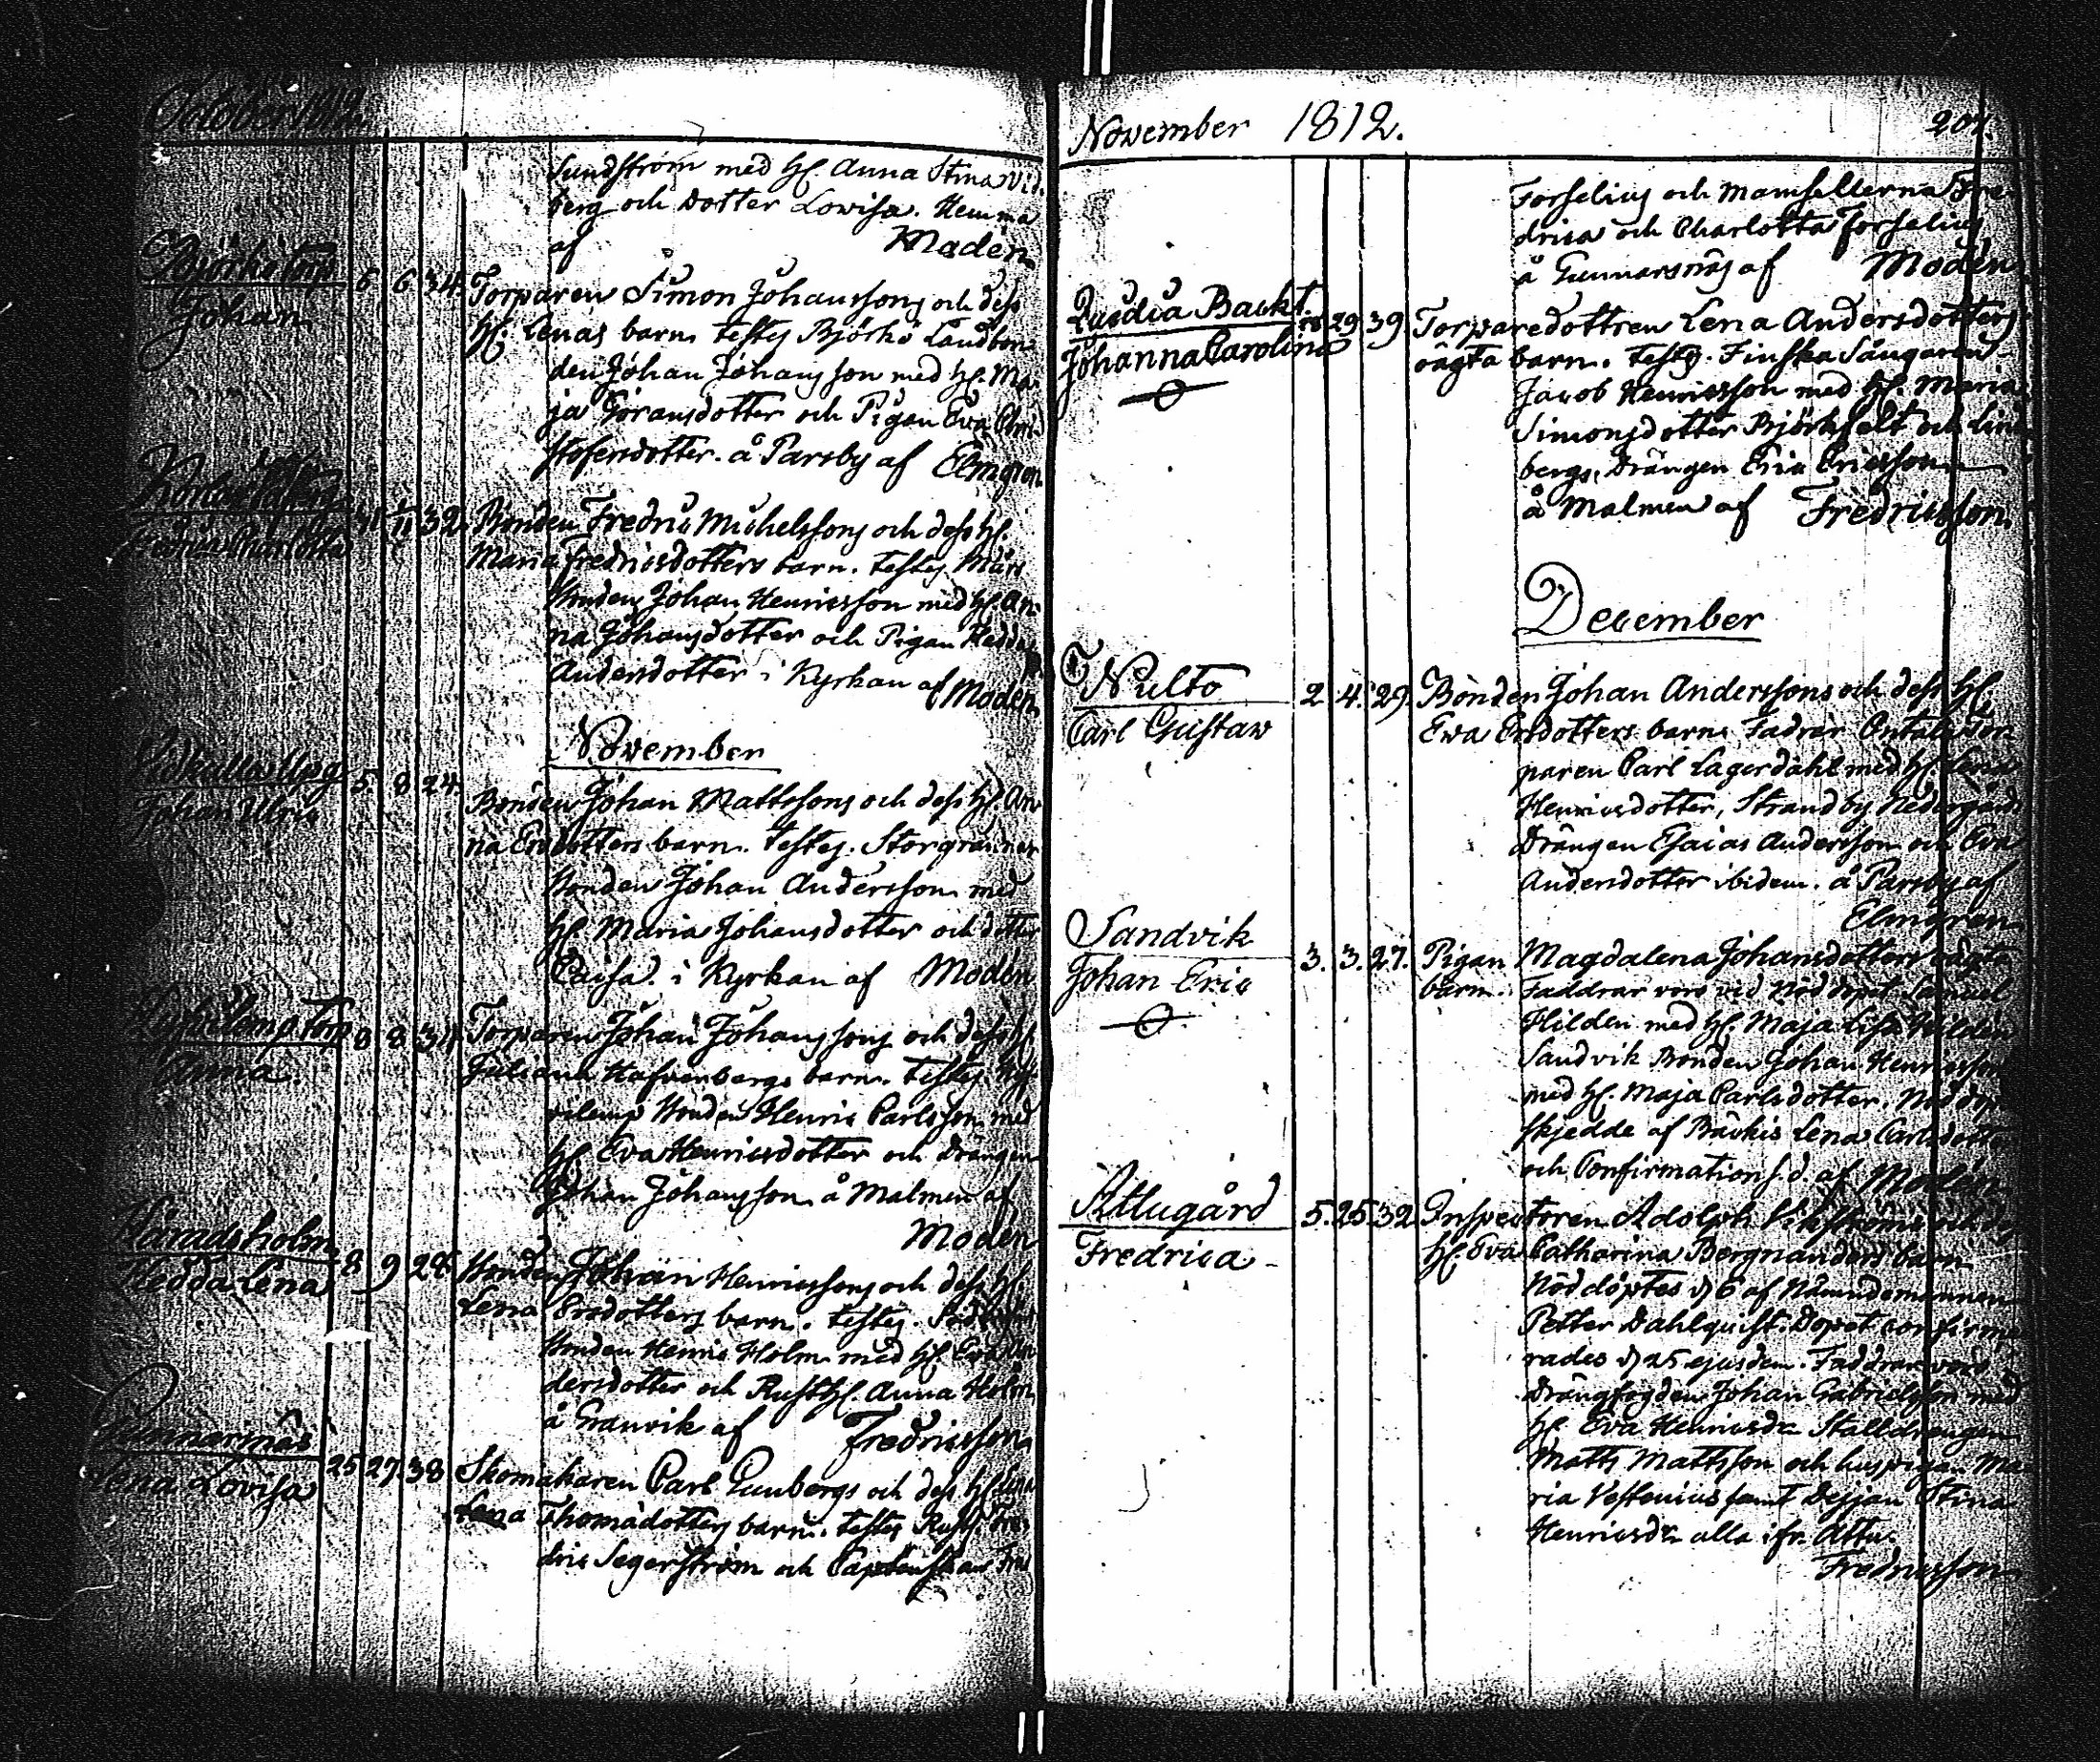 October 1812
Sundström med H. Anna Stina Vid-
berg och Dotter Lovisa. Hemma
af Modén
Björkö torp
Johan
6 6 34. Torparen Simon Johanssons och dess
H. Lenas barn. testes Björkö Landbon-
den Johan Johansson med H. Ma-
ja Göransdotter och Pigan Eva Chri-
stofersdotter. å Parsby af Elmgren
Fredrica Charlotta
32 Bonden Fredric Michelssons och dess H.
Maria Fredricsdotters barn. testes
Bonden Johan Henricsson med H. An-
na Johansdotter och Pigan Hedda
Andersdotter i Kyrkan af Modén
November
Johan Ulric
5 8 24. Bonden Johan Mattssons och dess H. An-
na Ersdotters barn. testes. Storgranner
Bonden Johan Andersson med
H. Maria Johansdotter och dotter
Caisa. i Kyrkan af Modén
torp
Anna
8 8 34 Torparen Johan Johanssons och dess H.
Juliana Hafvenbergs barn. testes.
Bonden Henric Carlsson med
H. Eva Henricsdotter och Drängen
Johan Johansson å Malmen af
Modén
Håradsholm
Hedda Lena
8 9 28 Bonden Johan Henricssons och dess H.
Lena Ersdotters barn. testes.
Bonden Henric Holm med H. Eva An-
dersdotter och Rusth. Anna Holm
å Granvik af Fredricsson
Gunnarsnäs
Lena Lovisa
25 27 38 Skomakaren Carl Gunbergs och dess H.
Lena Thomådotters barn. testes Rusth. Fre-
dric Segerström och
November 1812. 207.
Forselius och Mamsellerna Fre-
drica och Charlotta Forselius
å Gunnarsnäs af Modén
Backt.
Johanna Carolina
29 39 Torparedottren Lena Andersdotters
oägta barn. testes. Finska Sångaren
Jacob Henricsson med H. Maria
Simonsdotter Björkfelt och Lind-
bergs Drängen Eric Ericsson
å Malmen af Fredricsson
December
Nulto
Carl Gustav
2 4. 29. Bonden Johan Anderssons och dess H.
Eva Ersdotters barn. Fadrar Ontala Tor-
paren Carl Lagerdahl med H. Lena
Henricsdotter, Strandby Nedergårds
Drängen Esaias Andersson och Eva
Andersdotter ibidem. å Parsby af
Elmgren
Sandvik
Johan Eric
3. 3. 27. Pigan Magdalena Johansdotters oägta
barn. Faddrar voro vid Nöddopet Samuel
Hildén med H. Maja Lisa Hildén
Sandvik Bonden Johan Henricsson
med H. Maja Carlsdotter. Nöddop
skjedde af Bäckis Lena Carlsdotter
och Confirmation s. d. af Modén
Attugård
Fredrica
5. 25. 32 Inspectoren Adolph Vikströms och d.
H. Eva Catharina Bergmanders barn
Nöddöptes d 6 af Nämndemannen
Petter Dahlquist. Dopet confirme-
rades d 25 ejusdem. Faddrar voro
Drängfogden Johan Gabrielsson med
H. Eva Henricsdr Stalldrengen
Matts Mattsson och huspigan Ma-
ria Vestenius samt Dejjan Stina
Henricsdr alla ifr. Attu.
Fredricsson